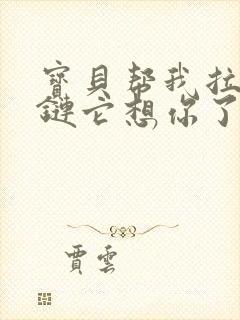 寶貝幫我拉
鏈它想你了
賈雲